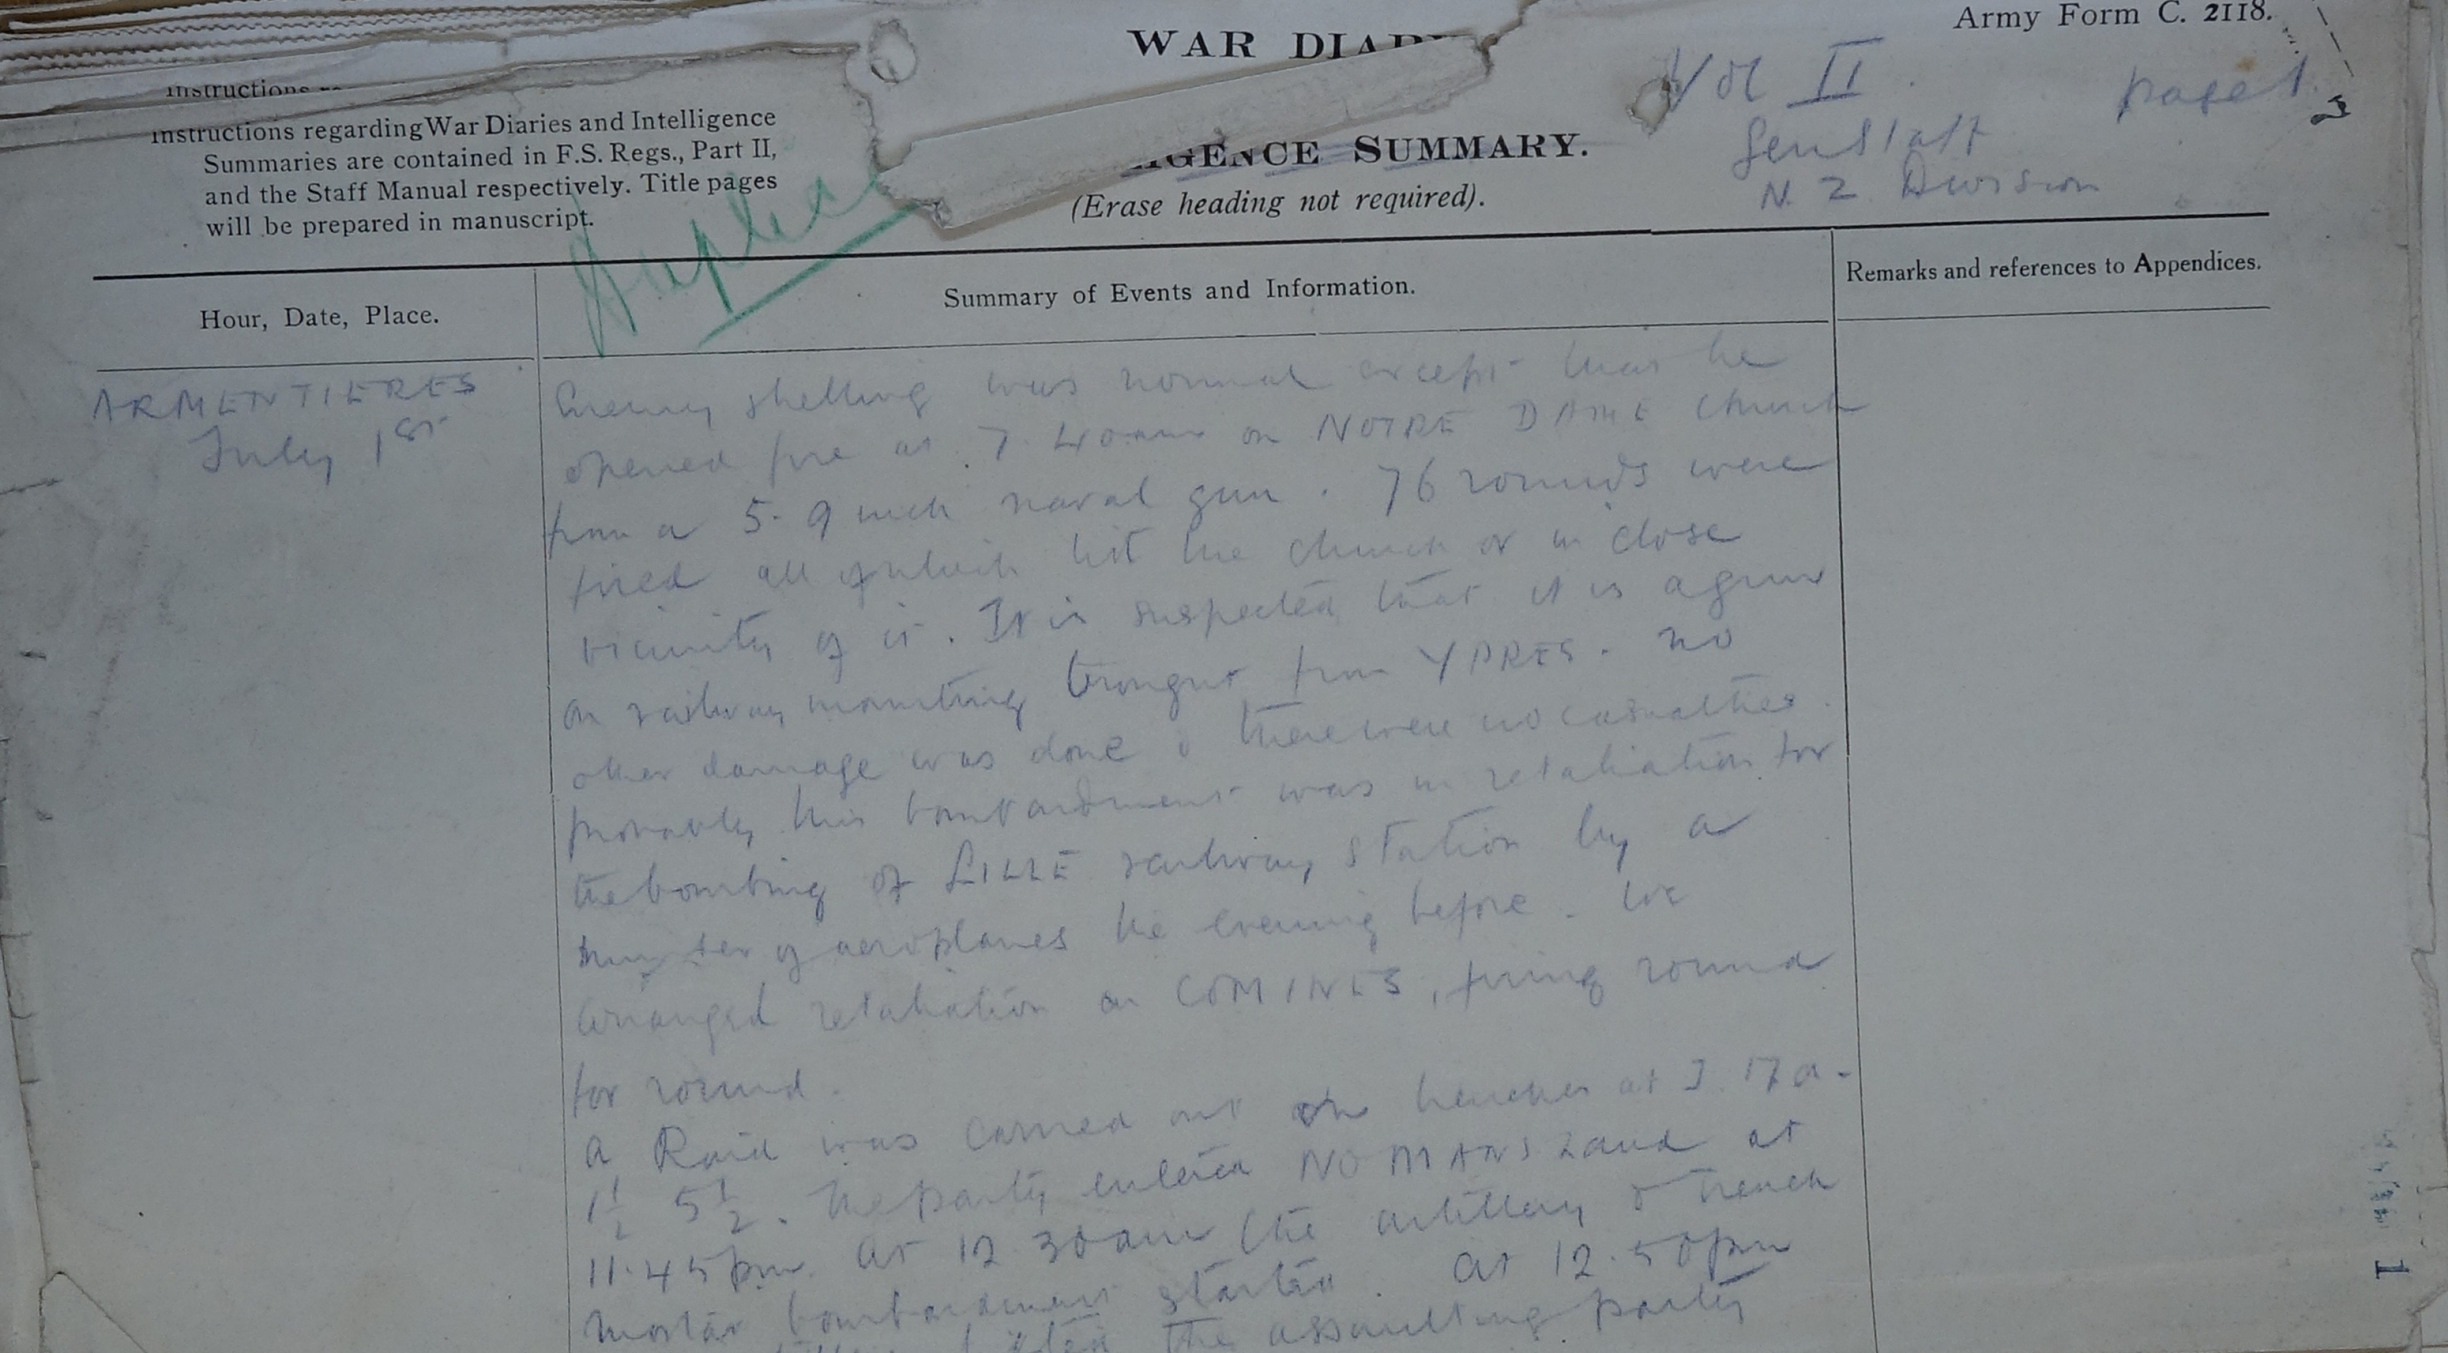 Army Form C. 2118.
WAR DIARY
Vol II. page 1
Instructions
Instructions regarding War Diaries and Intelligence
Summaries are contained in F.S. Regs., Part II,
and the Staff Manual respectively. Title pages
will be prepared in manuscript.
IGENCE SUMMARY.
(Erase heading not required).
Gen Staff
N. Z Division
Hour, Date, Place.
Summary of Events and Information.
Remarks and references to Appendices.
ARMENTIERES
July 1st
Enemy shelling was normal except that he
opened fire at 7.40am on NOTRE DAME church
from a 5.9 inch naval gun. 76 rounds were
fired all of which hit the church or in close
vicinity of it. It is suspected that it is a gun
on railway mounting brought from YPRES. No
other damage was done & there were no casualties.
Probably this bombardment was in retaliation for
the bombing of LILLE railway station by a
number of aeroplanes the evening before. We
arranged retaliation on COMINES, firing round
for round.
A Raid was carried out on trenches at I.17.a.
1½ 5½. The party entered NO MANS Land at
11.45pm. At 12.30am the artillery & trench
mortar bombardment started. At 12.50pm
the assaulting party
1